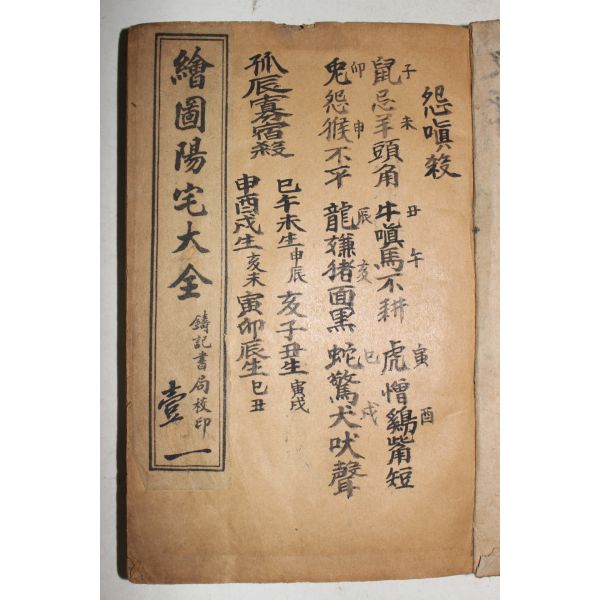 怨嗔殺
鼠忌羊頭角 牛嗔馬不耕 虎憎鷄觜短
子 未 丑 午 寅 酉
兎怨猴不平 龍嫌猪面黑 蛇驚犬吠聲
卯 申 辰 亥 巳 戌
孤辰寡宿殺
巳午未生申辰 亥子丑生寅戌
申酉戌生亥未 寅卯辰生巳丑
繪圖陽宅大全
鑄記書局校印
壹一